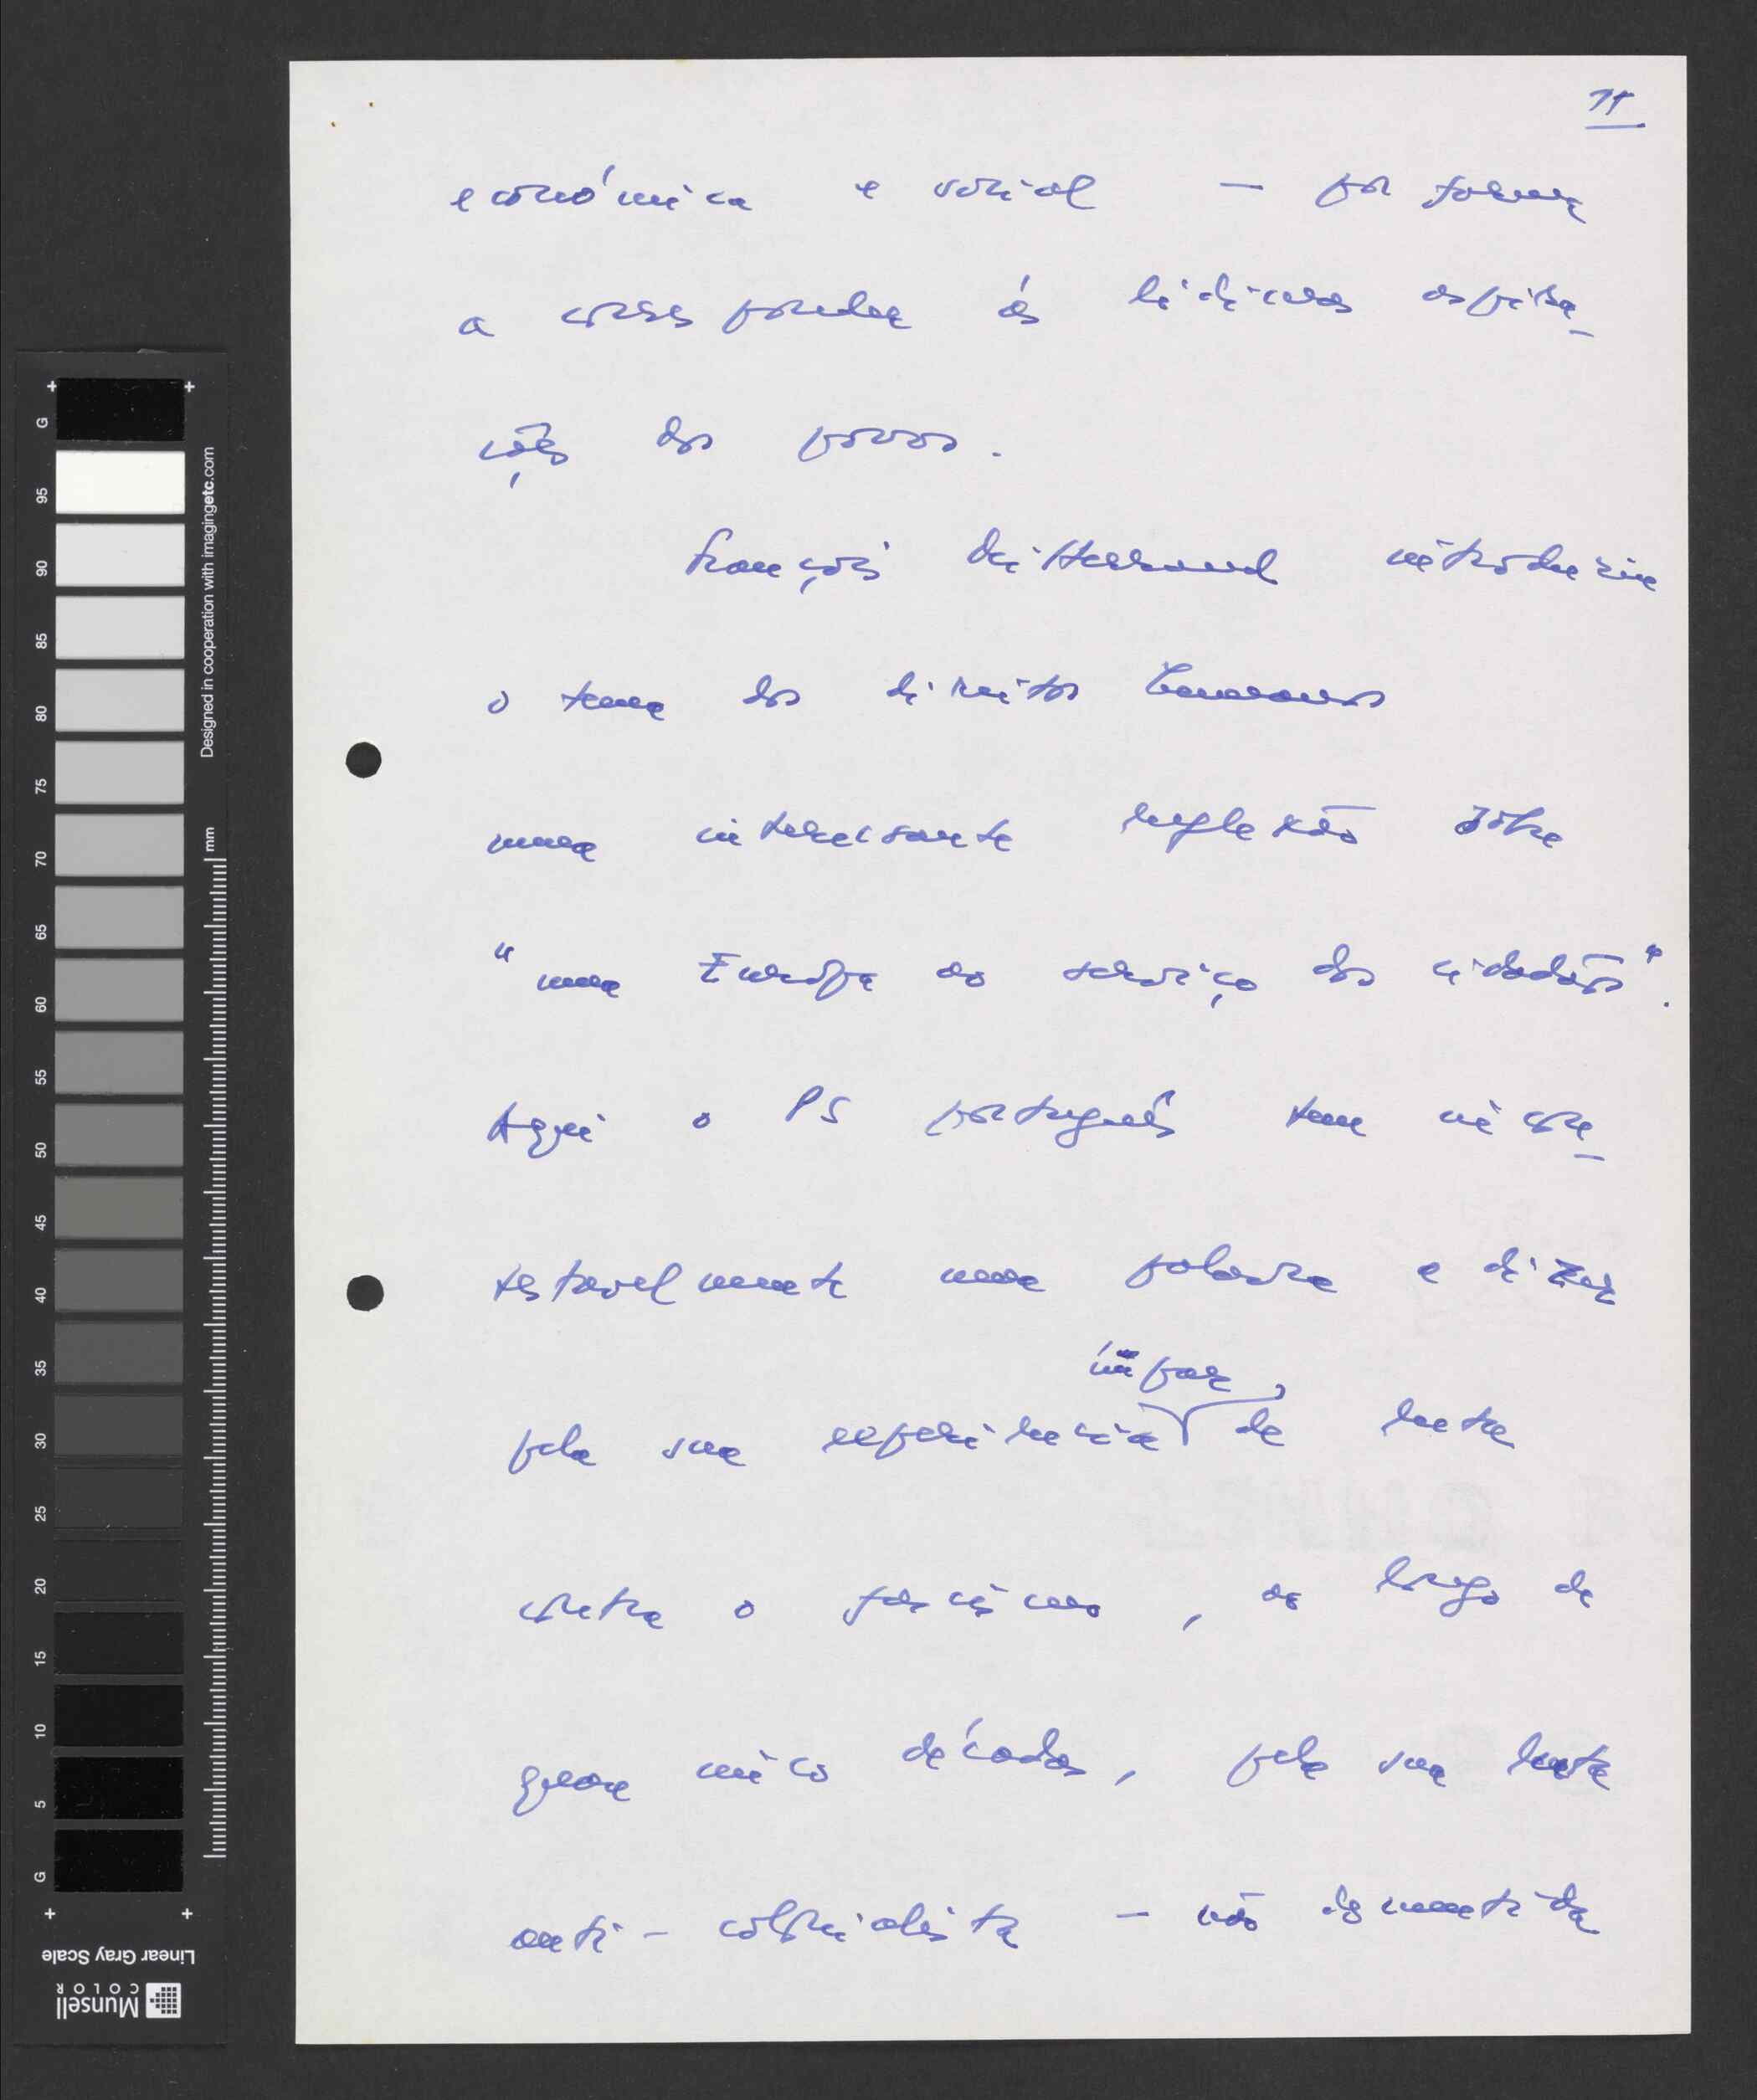 11
económica e social — por forma
a corresponder às legítimas aspira_
ções dos povos.
François Mitterrand introduziu
o tema dos direitos humanos
numa interessante reflexão sobre
"uma Europa ao serviço dos cidadãos".
Aqui o PS português tem incon_
testavelmente uma palavra a dizer
ímpar,
pela sua experiência de luta
contra o fascismo, ao longo de
quase cinco décadas, pela sua luta
anti-colonialista — não desmentida
G 95 90 85 80 75 70 65 60 55 50 45 40 35 30 25 20 15 10 5 G
Designed in cooperation with imagingetc.com
mm
Linear Gray Scale
Munsell
COLOR